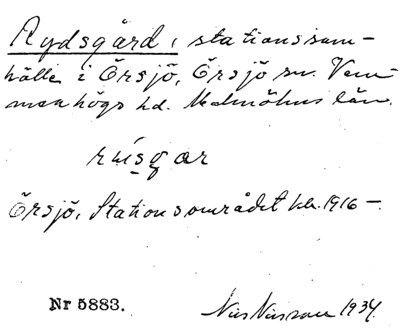 Rydsgård, stationssam-
hälle i Örsjö, Örsjö sn. Vem-
menhögs hd. Malmöhus län.
Örsjö, Stationsområdet 1916 -.
Nr 5883.
Nils Nilsson 1934.